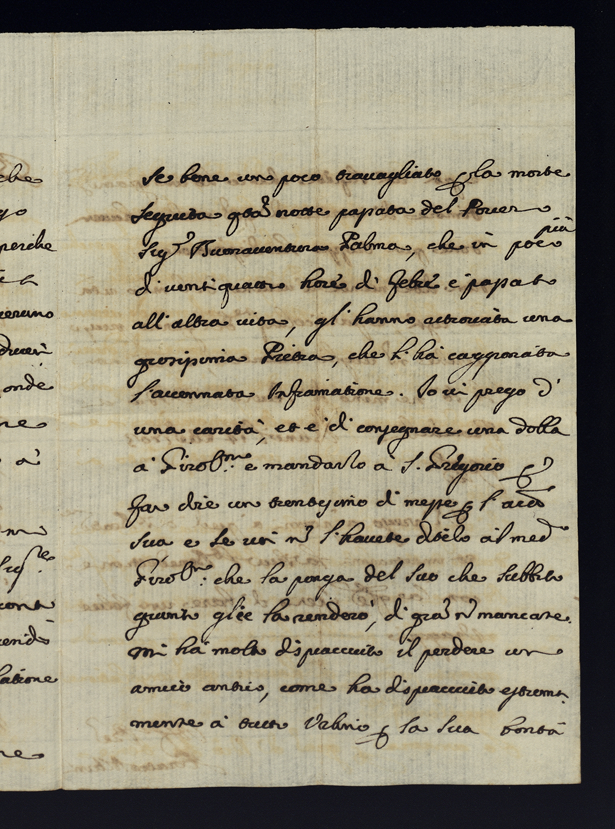 che
se bene un poco travagliato per la morte
seguita qta notte passata del Pover
perche
Sigr Buonaventura Palma, che in poco più
di venti quattro hore di febre è passato
all'altra vita, gl'hanno attrovata una
grosissima Pietra, che l'hà caggionata
onde
l'accennata Infiamatione. Io vi prego d'
una carità, et è di consegnare una dolla
à
à Girolmo e mandarlo à S. Gregorio per
far dire un trentesimo di messe per l'
sua e se voi nō l'havete ditelo al medo
Girolmo: che la ponga del suo che subbito
gionto gliè la renderò, di gra nō mancate.
Mi hà molto dispiacciuto il perdere un
amico antico, come ha dispiacciuto estrema
mente à tutto Urbino per la sua bontà